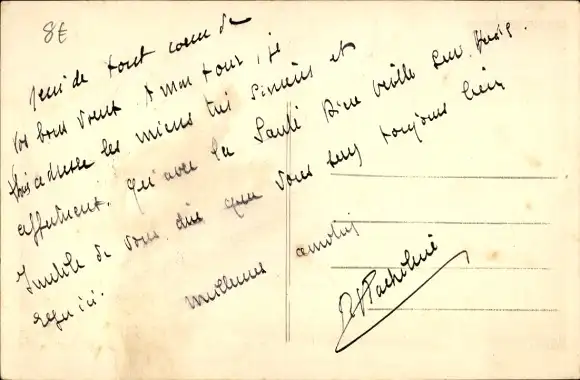 8€
de tout coeur de
vos bons vœux. A mon tour, je
vous adresse les miens très sincères et
qu'avec la Santé Dieu veille sur vous.
Inutile de vous dire que vous serez toujours bien
reçu ici.
meilleures amitiés